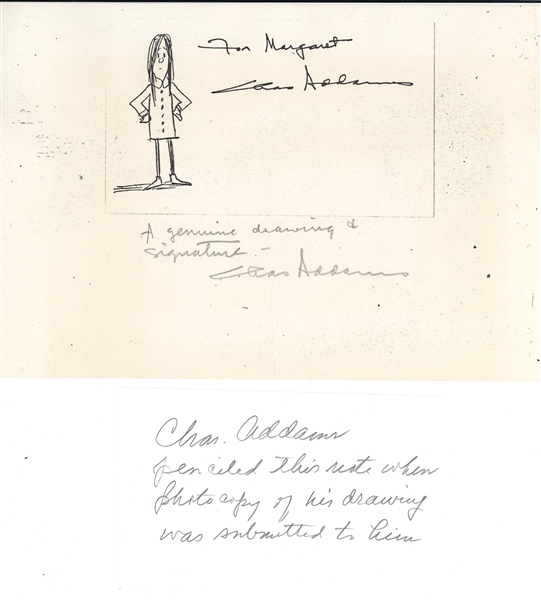 For Margaret
Chas Addams
A genuine drawing &
signature —
Chas Addams
Chas. Addams
penciled this note when
photocopy of his drawing
was submitted to him